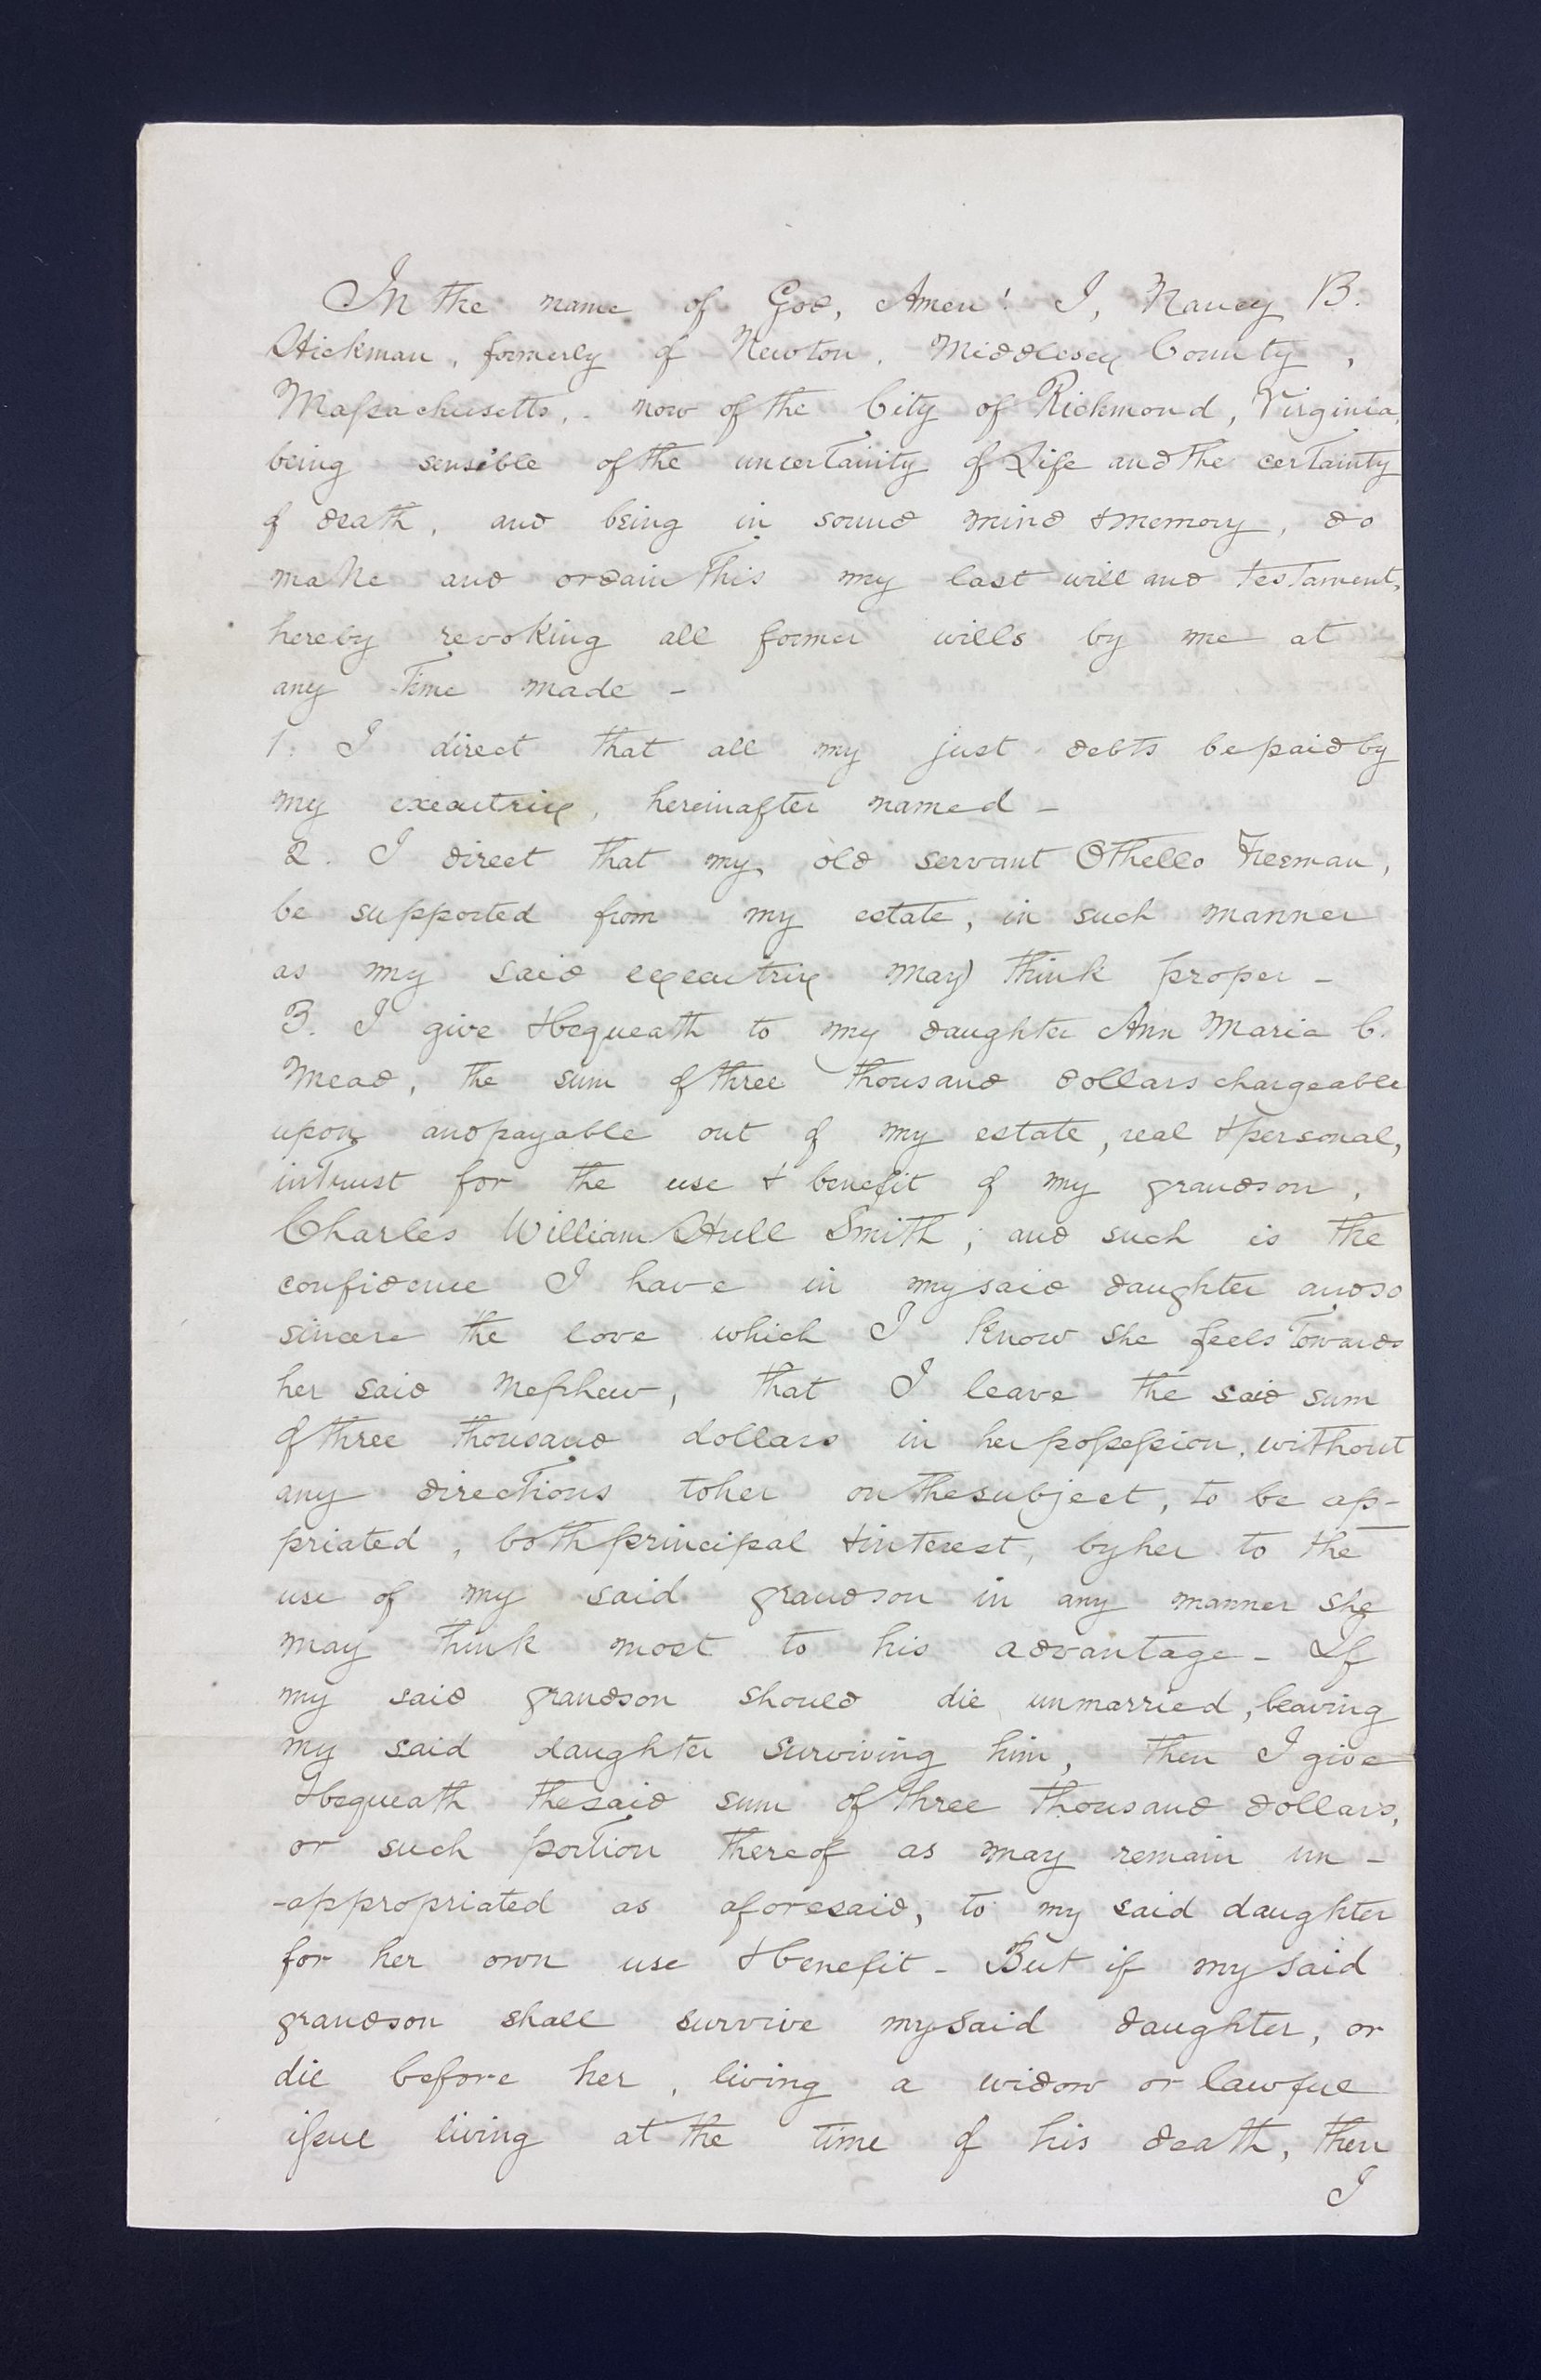 In the name of God, Amen! I, Nancy B.
Hickman, formerly of Newton, Middlesex County,
Massachusetts, now of the City of Richmond, Virginia,
being sensible of the uncertainity of Life and the certainty
of death, and being in sound mind & memory, do
make and ordain this my last will and testament,
hereby revoking all former wills by me at
any time made -
1. I direct that all my just debts be paid by
my executrix, hereinafter named -
2. I direct that my old servant Othello Freeman,
be supported from my estate, in such manner
as my said executrix may think proper -
3. I give & bequeath to my daughter Ann Maria C.
Mead, the sum of three thousand dollars chargeable
upon and payable out of my estate, real & personal,
in trust for the use & benefit of my grandson,
Charles William Hull Smith; and such is the
confidence I have in my said daughter and so
sincere the love which I know she feels towards
her said Nephew, that I leave the said sum
of three thousand dollars in her possession, without
any directions to her on the subject, to be ap-
priated, both principal & interest, by her to the
use of my said grandson in any manner she
may think most to his advantage - If
my said grandson should die unmarried, leaving
my said daughter surviving him, then I give
& bequeath the said sum of three thousand dollars,
or such portion thereof as may remain un-
-appropriated as aforesaid, to my said daughter
for her own use & benefit - But if my said
grandson shall survive my said daughter, or
die before her, living a widow or lawful
issue living at the time of his death, then
I